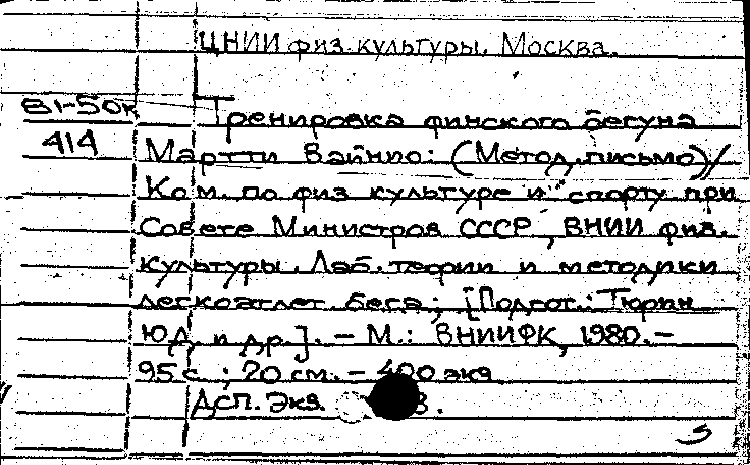 ЦНИИ физ. культуры. Москва.
81-50к Тренировка финского бегуна
414 Мартти Вайнио: (Метод. письмо)/
Ком. по физ культуре и спорту при
Совете Министров СССР, ВНИИ физ.
культуры. Лаб. теории и методики
легкоатлет. бега; [Подгот.: Тюрин
Ю.Д. и др.]. – М.: ВНИИФК, 1980. –
95 с.; 20 см. – 400 экз
ДСП. Экз.